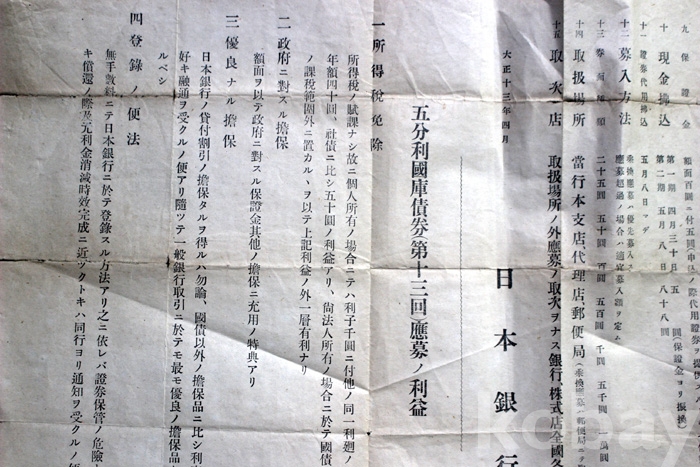 九 保 證 金
十 現 金 拂 込
第一期 四月三十日
第二期 五月八日 八十八圓
十一 證券代用拂込 五月八日マデ
十二 募入方法
應募超過ノ場合ハ適宜募入額ヲ定ム
十三 二十五圓 五十圓 百圓 五百圓 千圓 五千圓
十四 取扱場所 當行本支店、代理店、郵便局
十五 取次店 取扱場所ノ外應募ノ取次ヲナス銀行、株式店全國各
大正十三年四月
日本銀行
五分利國庫債券(第十三回)應募ノ利益
一 所得稅免除
所得稅ノ賦課ナシ故ニ個人所有ノ場合ニテハ利子千圓ニ付他ノ同一利廻ノ
年額四十圓、社債ニ比シ五十圓ノ利益アリ、尙法人所有ノ場合ニ於テ國債
ノ課稅範圍外ニ置カルヽヲ以テ上記利益ノ外一層有利ナリ
二 政府ニ對スル擔保
額面ヲ以テ政府ニ對スル保證金其他ノ擔保ニ充用ノ特典アリ
三 優良ナル擔保
日本銀行ノ貸付割引ノ擔保タルヲ得ルハ勿論、國債以外ノ擔保品ニ比シ利
好キ融通ヲ受クルノ便アリ隨ツテ一般銀行取引ニ於テモ最モ優良ノ擔保品
ルベシ
四 登錄ノ便法
無手數料ニテ日本銀行ニ於テ登錄スル方法アリ之ニ依レバ證券保管ノ危險
キ償還ノ際及元利金消滅時效完成ニ近ヅクトキハ同行ヨリ通知ヲ受クルノ便
kobay